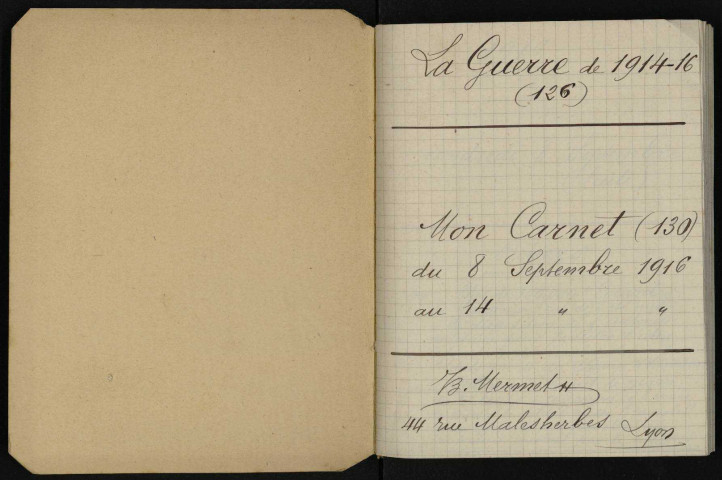 La Guerre de 1914-16
(126)
Mon Carnet (130)
du 8 Septembre 1916
au 14 " "
B. Mermet
44 rue Malesherbes Lyon